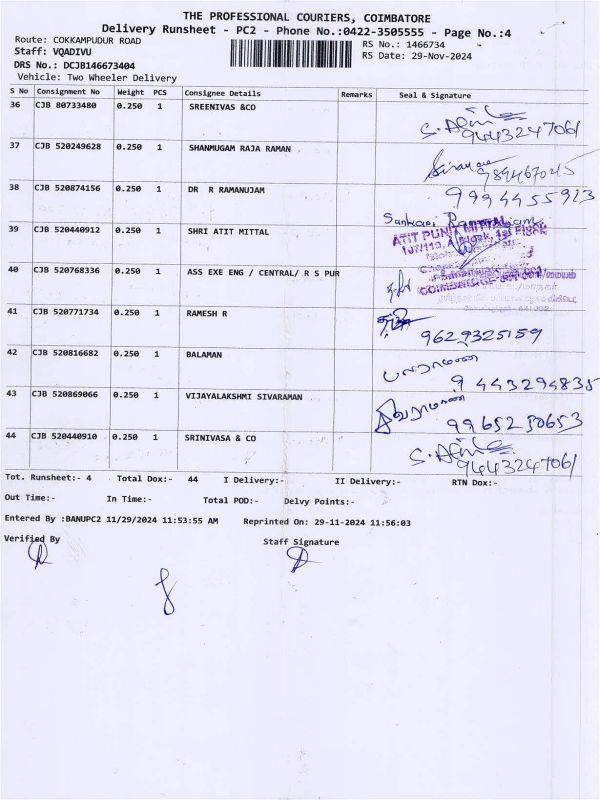 THE PROFESSIONAL COURIERS, COIMBATORE
Delivery Runsheet - PC2 - Phone No.:0422-3505555 - Page No.:4
Route: COKKAMPUDUR ROAD
RS No.: 1466734
Staff: VQADIVU
RS Date: 29-Nov-2024
DRS No.: DCJB146673404
Vehicle: Two Wheeler Delivery
S No Consignment No Weight PCS Consignee Details Remarks Seal & Signature
36 CJB 80733480 0.250 1 SREENIVAS &CO
9443247061
37 CJB 520249628 0.250 1 SHANMUGAM RAJA RAMAN
38 CJB 520874156 0.250 1 DR R RAMANUJAM 9994455913
39 CJB 520440912 0.250 1 SHRI ATIT MITTAL
ATIT PUNIT MITTAL
40 CJB 520768336 0.250 1 ASS EXE ENG / CENTRAL/ R S PUR
41 CJB 520771734 0.250 1 RAMESH R
9629325159
42 CJB 520816682 0.250 1 BALAMAN
9443294835
43 CJB 520869066 0.250 1 VIJAYALAKSHMI SIVARAMAN
9965230653
44 CJB 520440910 0.250 1 SRINIVASA & CO
9443247061
Tot. Runsheet:- 4 Total Dox:- 44 I Delivery:- II Delivery:- RTN Dox:-
Out Time:- In Time:- Total POD:- Delvy Points:-
Entered By :BANUPC2 11/29/2024 11:53:55 AM Reprinted On: 29-11-2024 11:56:03
Verified By Staff Signature